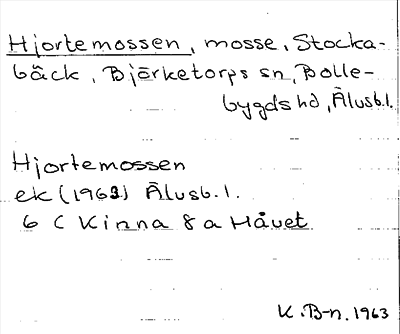 Hjortemossen, mosse, Stocka-
bäck, Björketorps sn, Bolle-
bygds hd, Älvsb.l.
Hjortemossen
ek (1963) Älvsb.l.
6 C Kinna 8 a Håvet
K.B-n. 1963